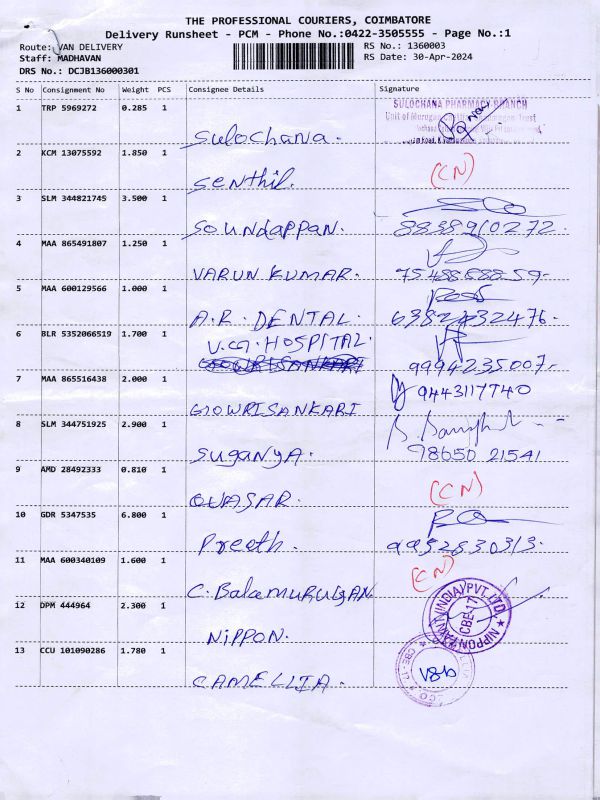 THE PROFESSIONAL COURIERS, COIMBATORE
Delivery Runsheet - PCM - Phone No.:0422-3505555 - Page No.:1
Route: VAN DELIVERY
RS No.: 1360003
Staff: MADHAVAN
RS Date: 30-Apr-2024
DRS No.: DCJB136000301
S No Consignment No Weight PCS Consignee Details Signature
1 TRP 5969272 0.285 1
SULOCHANA PHARMACY BRANCH
Sulochana.
2 KCM 13075592 1.850 1
Senthil. (CN)
3 SLM 344821745 3.500 1
Soundappan. 8838910272.
4 MAA 865491807 1.250 1
VARUN KUMAR.
5 MAA 600129566 1.000 1
A.R. DENTAL. 6382432476.
6 BLR 5352066519 1.700 1
V.G. HOSPITAL. 9994235007.
7 MAA 865516438 2.000 1
GOWRISANKARI 9443117740
8 SLM 344751925 2.900 1
Suganya. 98650 21541
9 AMD 28492333 0.810 1
QUASAR. (CN)
10 GDR 5347535 6.800 1
Preeth. 9952830313.
11 MAA 600340109 1.600 1
(CN)
C. Balamurugan
12 DPM 444964 2.300 1
NIPPON. (INDIA) PVT. LTD. CBE-17
13 CCU 101090286 1.780 1
CAMELLIA.